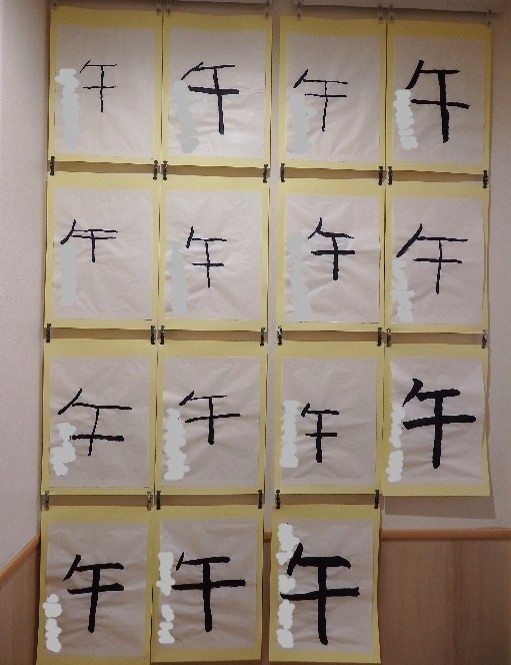 午 午 午 午
午 午 午 午
午 午 午 午
午 午 午